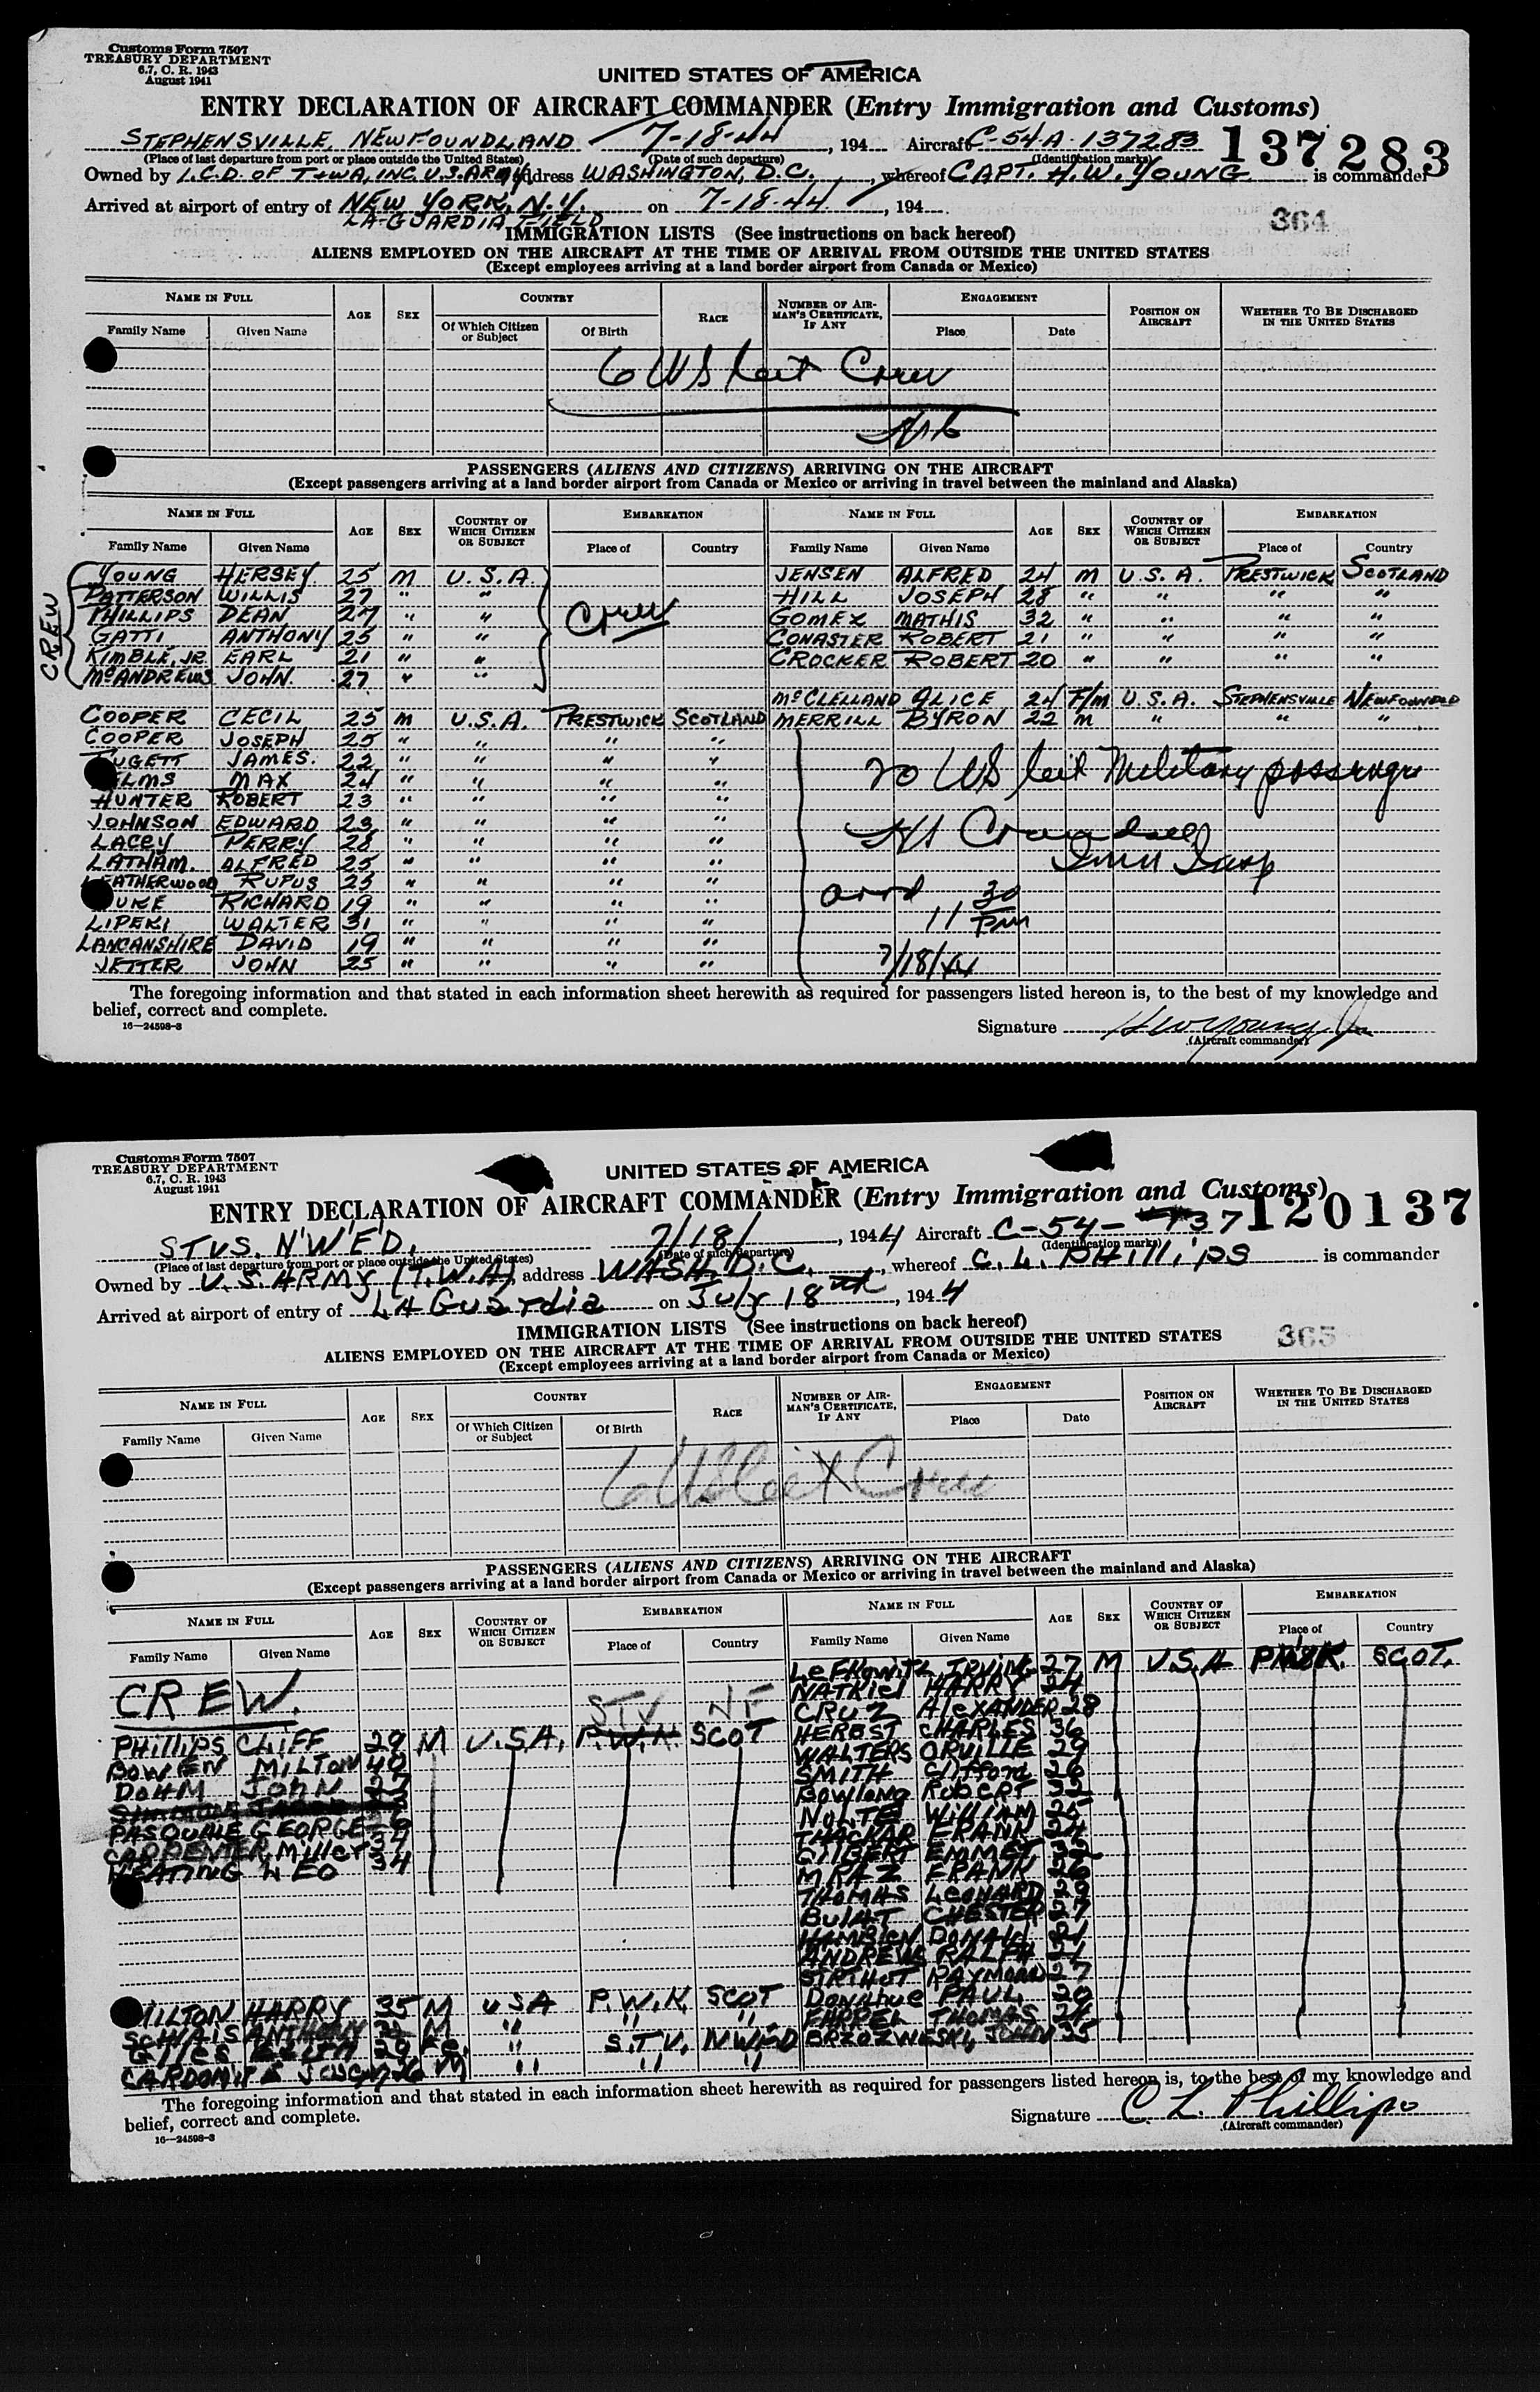 Customs Form 7507
TREASURY DEPARTMENT
6.7, C. R. 1943
August 1941
UNITED STATES OF AMERICA
ENTRY DECLARATION OF AIRCRAFT COMMANDER (Entry Immigration and Customs)
STEPHENSVILLE, NEWFOUNDLAND 7-18-44, 194 Aircraft C-54A-137283 137283
(Place of last departure from port or place outside the United States) (Date of such departure) (Identification marks)
Owned by I.C.D. OF T&WA, INC. U.S. ARMY address WASHINGTON, D.C., whereof CAPT. H.W. YOUNG is commander
Arrived at airport of entry of NEW YORK, N.Y. on 7-18-44, 194
LA-GUARDIA FIELD
364
IMMIGRATION LISTS (See instructions on back hereof)
ALIENS EMPLOYED ON THE AIRCRAFT AT THE TIME OF ARRIVAL FROM OUTSIDE THE UNITED STATES
(Except employees arriving at a land border airport from Canada or Mexico)
NAME IN FULL AGE SEX COUNTRY RACE NUMBER OF AIRMAN'S CERTIFICATE, IF ANY ENGAGEMENT POSITION ON AIRCRAFT WHETHER TO BE DISCHARGED IN THE UNITED STATES
Family Name Given Name Of Which Citizen or Subject Of Birth Place Date
6 US Cit Crew
PASSENGERS (ALIENS AND CITIZENS) ARRIVING ON THE AIRCRAFT
(Except passengers arriving at a land border airport from Canada or Mexico or arriving in travel between the mainland and Alaska)
NAME IN FULL AGE SEX COUNTRY OF WHICH CITIZEN OR SUBJECT EMBARKATION NAME IN FULL AGE SEX COUNTRY OF WHICH CITIZEN OR SUBJECT EMBARKATION
Family Name Given Name Place of Country Family Name Given Name Place of Country
CREW
YOUNG HERSEY 25 M U.S.A. JENSEN ALFRED 24 M U.S.A. PRESTWICK SCOTLAND
PATTERSON WILLIS 27 " " HILL JOSEPH 28 " " " "
PHILLIPS DEAN 27 " " Crew GOMEZ MATHIS 32 " " " "
GATTI ANTHONY 25 " " CONASTER ROBERT 21 " " " "
KIMBLE, JR. EARL 21 " " CROCKER ROBERT 20 " " " "
McANDREWS JOHN 27 " "
McCLELLAND ALICE 24 F/M U.S.A. STEPHENSVILLE NEWFOUNDLD
COOPER CECIL 25 M U.S.A. PRESTWICK SCOTLAND MERRILL BYRON 22 M " " "
COOPER JOSEPH 25 " " " "
FUGETT JAMES 22 " " " "
ELMS MAX 24 " " " " 20 US Cit Military passenger
HUNTER ROBERT 23 " " " "
JOHNSON EDWARD 23 " " " "
LACEY PERRY 28 " " " "
LATHAM ALFRED 25 " " " " Imm Insp
EATHERWOOD RUFUS 25 " " " " arrd 11 30 PM
UKE RICHARD 19 " " " "
LIPEKI WALTER 31 " " " "
LANCANSHIRE DAVID 19 " " " "
JETTER JOHN 25 " " " " 7/18/44
The foregoing information and that stated in each information sheet herewith as required for passengers listed hereon is, to the best of my knowledge and
belief, correct and complete.
16—24598-3
Signature H W Young, Jr
(Aircraft commander)
Customs Form 7507
TREASURY DEPARTMENT
6.7, C. R. 1943
August 1941
UNITED STATES OF AMERICA
ENTRY DECLARATION OF AIRCRAFT COMMANDER (Entry Immigration and Customs)
STVS. N'W'F'D. 7/18/, 1944 Aircraft C-54- 137 120137
(Place of last departure from port or place outside the United States) (Date of such departure) (Identification marks)
Owned by U.S. ARMY (T.W.A) address WASH. D.C., whereof C. L. PHILLIPS is commander
Arrived at airport of entry of LA Guardia on July 18th, 1944
365
IMMIGRATION LISTS (See instructions on back hereof)
ALIENS EMPLOYED ON THE AIRCRAFT AT THE TIME OF ARRIVAL FROM OUTSIDE THE UNITED STATES
(Except employees arriving at a land border airport from Canada or Mexico)
NAME IN FULL AGE SEX COUNTRY RACE NUMBER OF AIRMAN'S CERTIFICATE, IF ANY ENGAGEMENT POSITION ON AIRCRAFT WHETHER TO BE DISCHARGED IN THE UNITED STATES
Family Name Given Name Of Which Citizen or Subject Of Birth Place Date
6 US Cit Crew
PASSENGERS (ALIENS AND CITIZENS) ARRIVING ON THE AIRCRAFT
(Except passengers arriving at a land border airport from Canada or Mexico or arriving in travel between the mainland and Alaska)
NAME IN FULL AGE SEX COUNTRY OF WHICH CITIZEN OR SUBJECT EMBARKATION NAME IN FULL AGE SEX COUNTRY OF WHICH CITIZEN OR SUBJECT EMBARKATION
Family Name Given Name Place of Country Family Name Given Name Place of Country
LEFKOWITZ IRVING 27 M U.S.A SCOT.
CREW. NATKIEL HARRY 24
STV NF CRUZ ALEXANDER 28
PHILLIPS CLIFF 29 M U.S.A. P.W.K. SCOT HERBST CHARLES 36
BOWEN MILTON 40 WALTERS ORVILLE 29
DOHM JOHN 27 SMITH Clifford 26
BOWLONG ROBERT 32
PASQUALE GEORGE NOLTE WILLIAM 25
CARPENTER Miller 34 THACKAR FRANK 24
KEATING LEO 34 GILBERT EMMET 32
MRAZ FRANK 26
THOMAS LEONARD 29
BULAT CHESTER 27
HAMBLEN DONALD 21
ANDREWS RALPH 21
RAYMOND 27
MILTON HARRY 35 M USA P.W.K. SCOT DONAHUE PAUL 20
ANTHONY M " " " FARREL THOMAS 24
GILES 20 Fe. " S.T.V. NWFD BRZOZWESKI, JOHN 35
JOSEPH 26 M " " "
The foregoing information and that stated in each information sheet herewith as required for passengers listed hereon is, to the best of my knowledge and
belief, correct and complete.
16—24598-3
Signature C L. Phillips
(Aircraft commander)